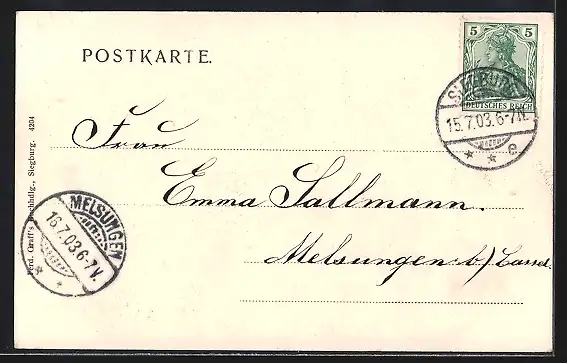 POSTKARTE.
5 5
DEUTSCHES REICH
SIEGBURG
15.7.03.6-7V.
* * e
Frau
Emma Sallmann.
Melsungen b/ Cassel.
MELSUNGEN
16.7.03.6-7V.
* *
Ferd. Graff's Buchhdlg., Siegburg. 4204